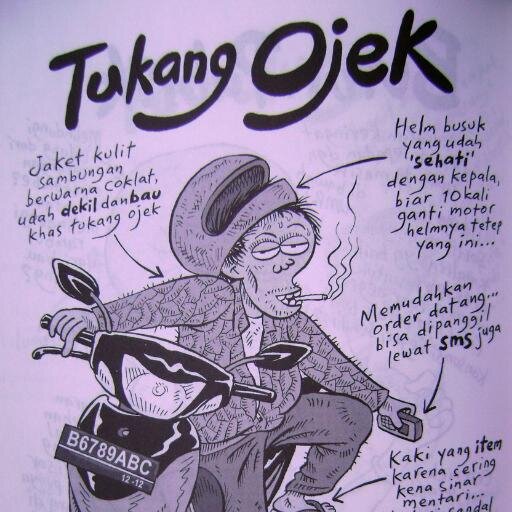 Tukang Ojek
Jaket kulit
sambungan
berwarna coklat,
udah dekil dan bau
khas tukang ojek
Helm busuk
yang udah
'sehati'
dengan kepala,
biar 10 kali
ganti motor
helmnya tetep
yang ini...
Memudahkan
order datang...
bisa dipanggil
lewat sms juga
B6789ABC
12-12
Kaki yang item
karena sering
kena sinar
mentari...
sandal